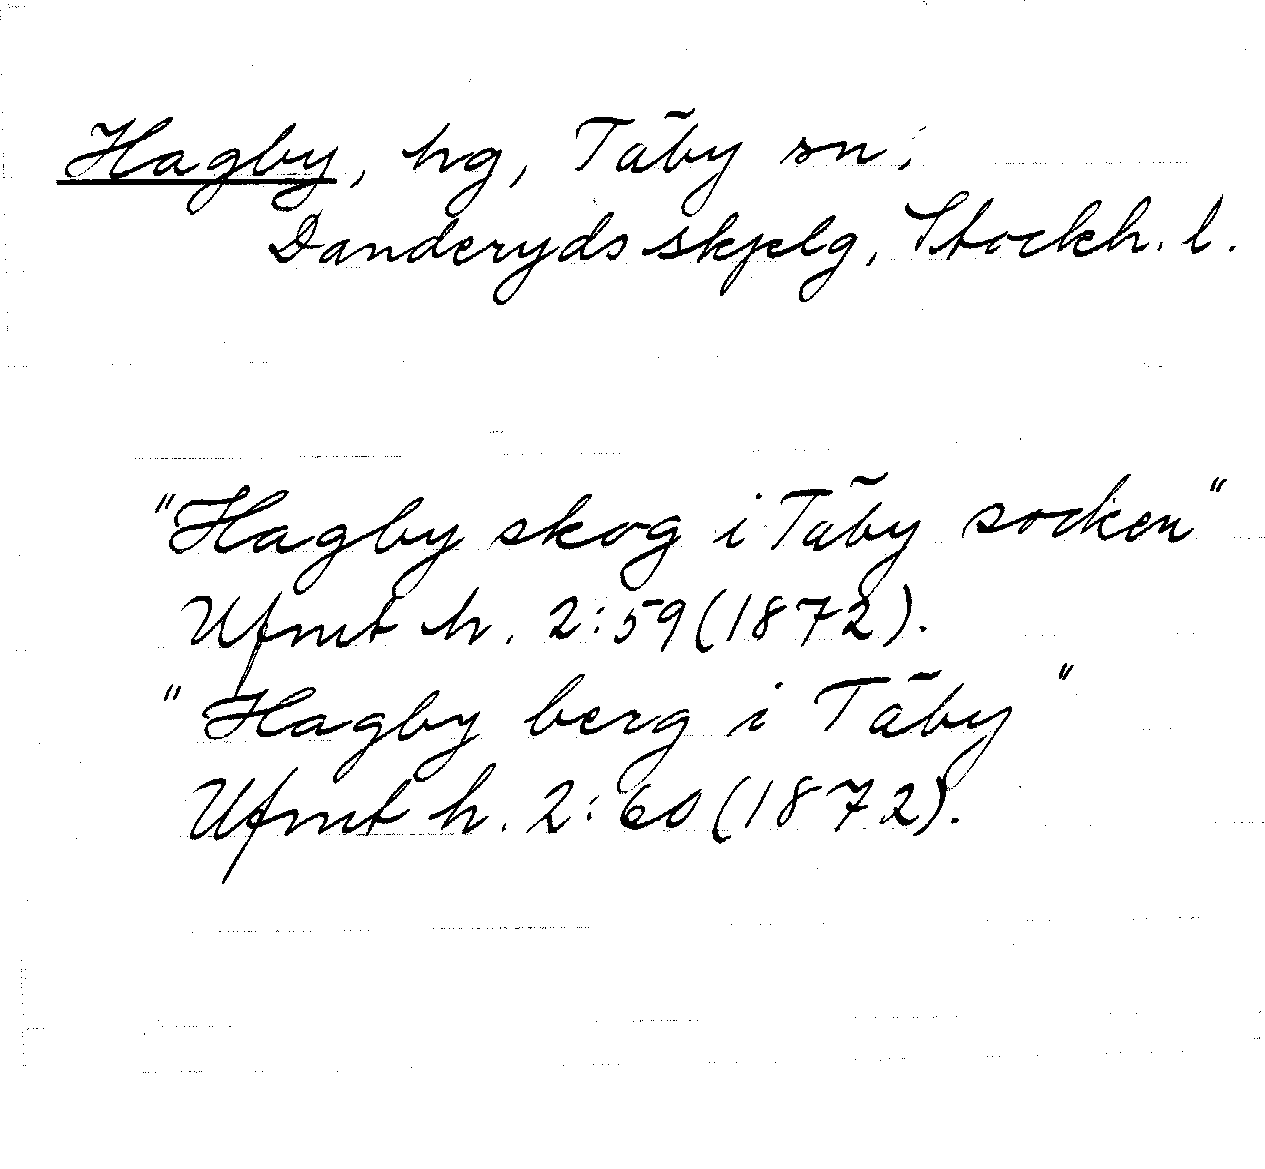 Hagby, hg, Täby sn,
Danderyds skplg, Stockh. l.
"Hagby skog i Täby socken"
Ufmt h. 2:59 (1872).
"Hagby berg i Täby"
Ufmt h. 2:60 (1872).